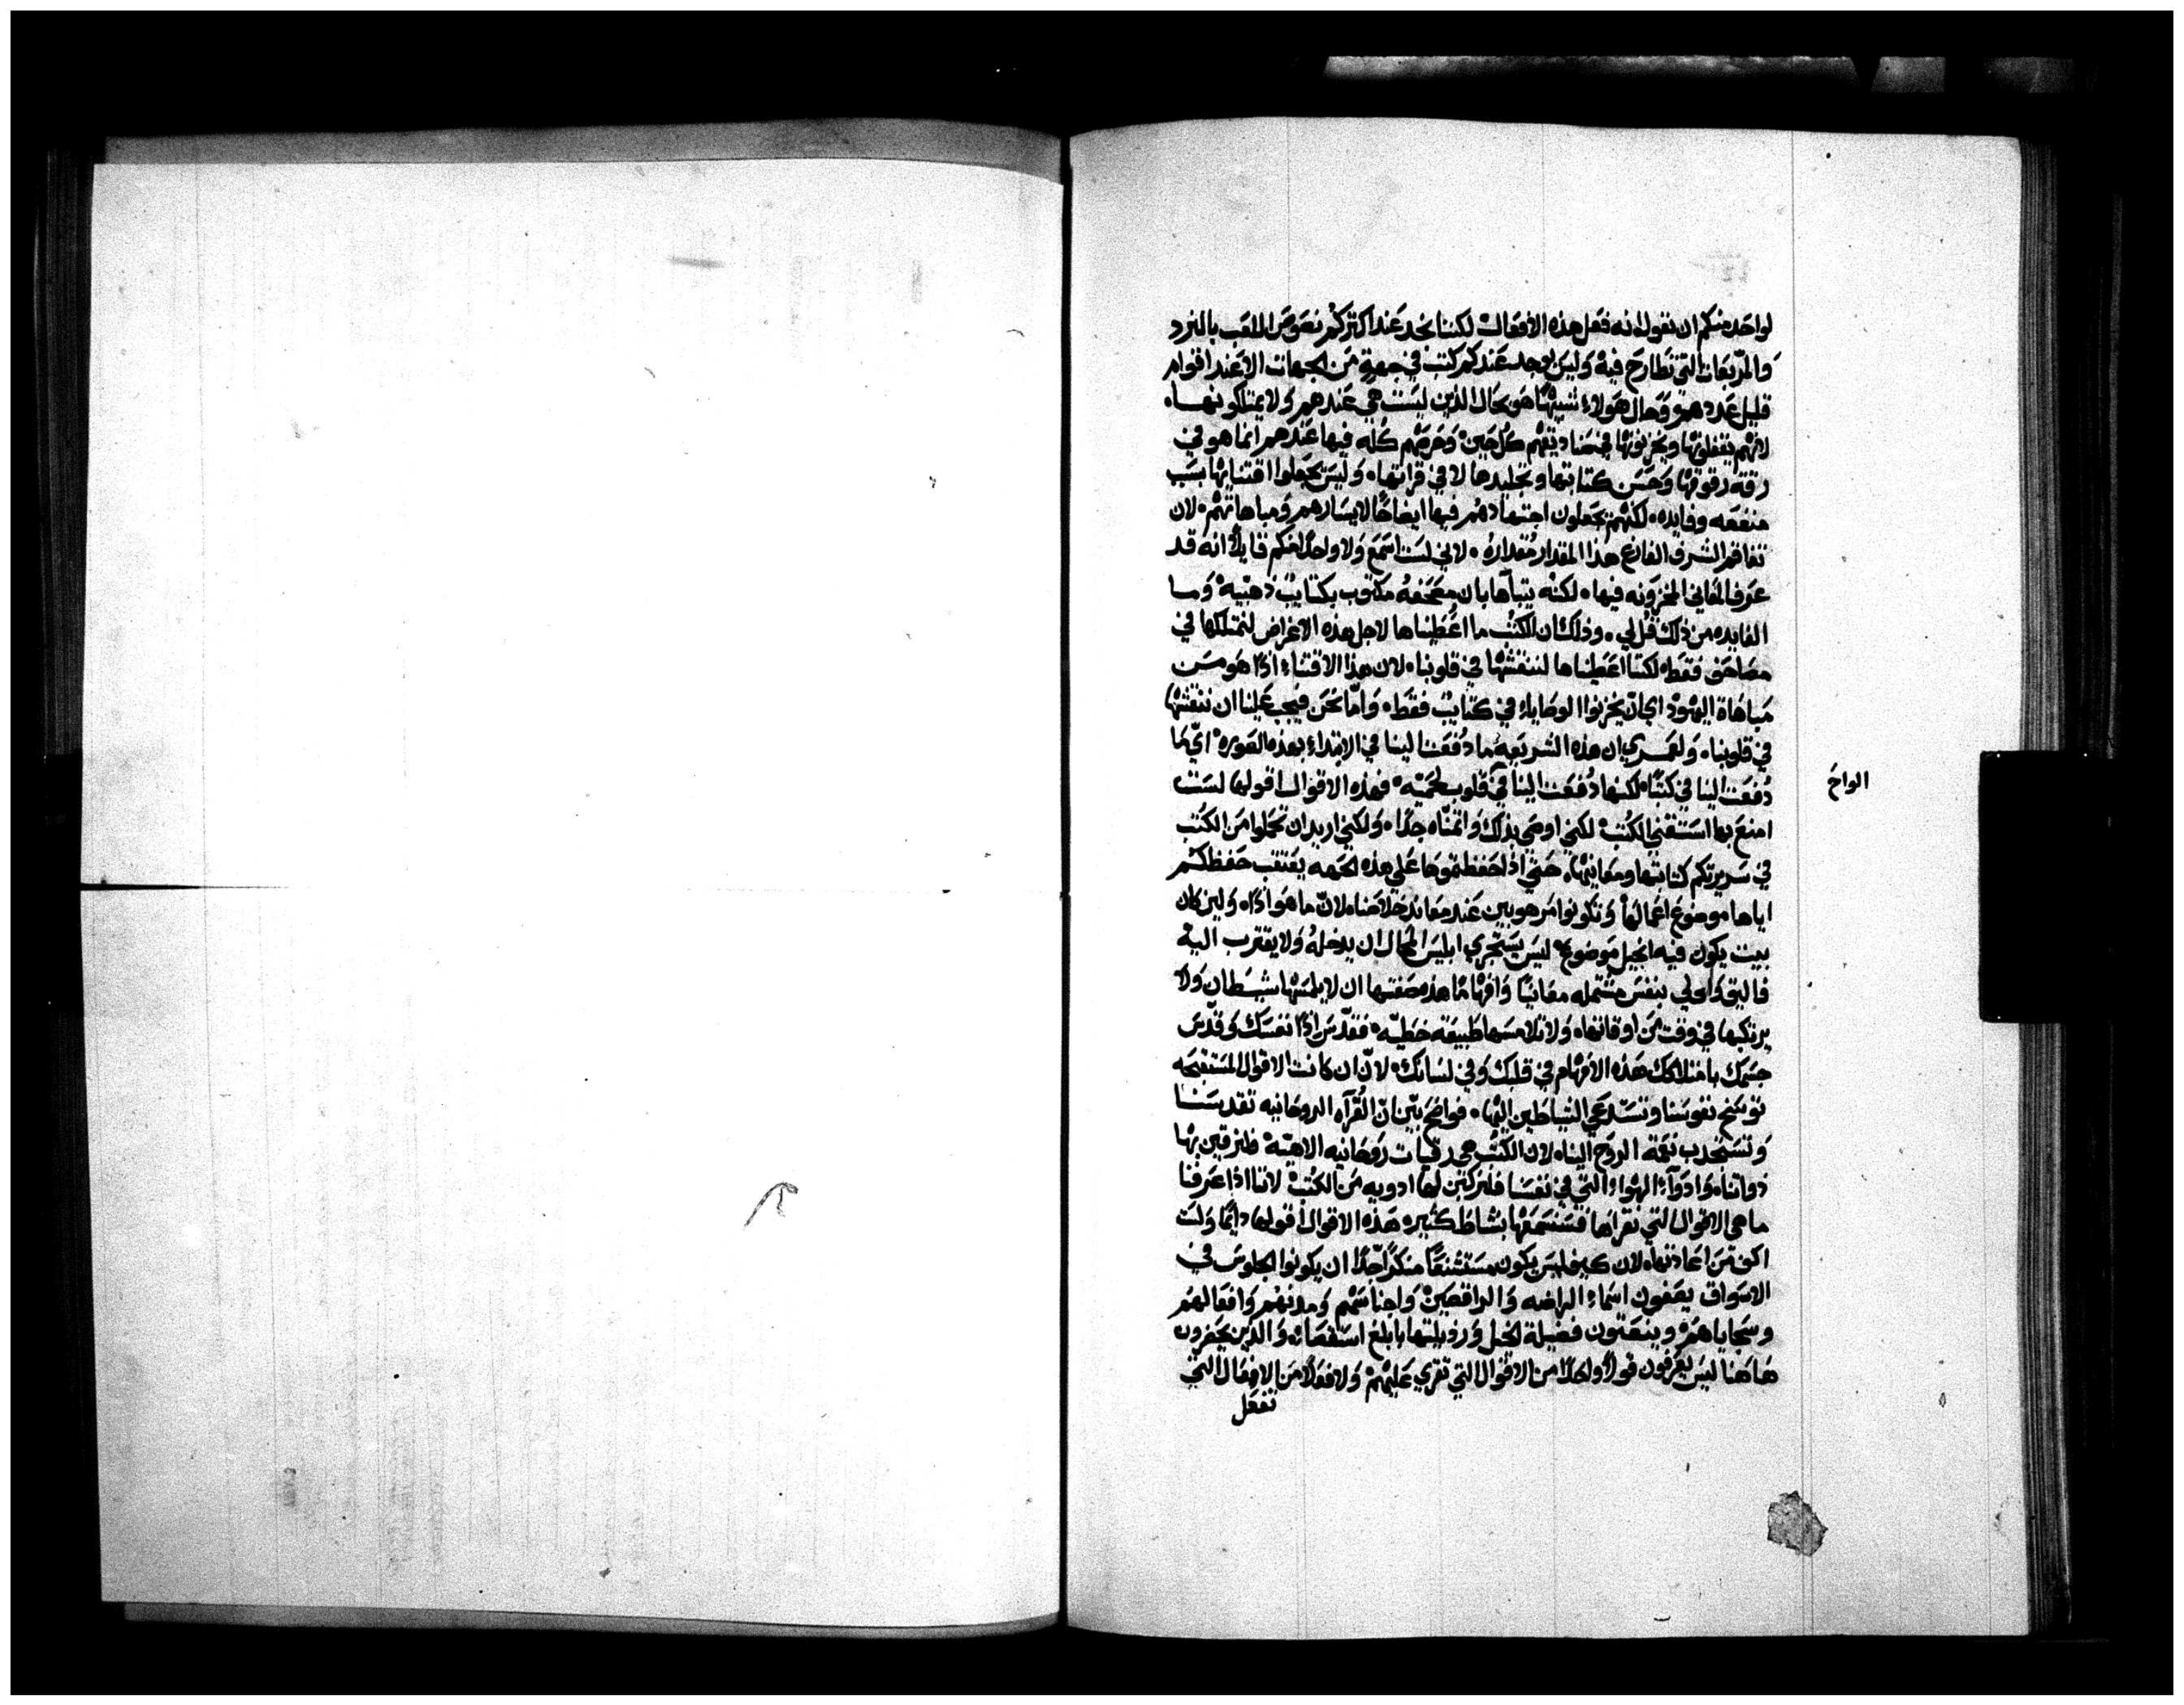 لواحد منكم ان نقول انه فعل هذه الافعال لكننا نجد عند اكثركم نصوص الملعب بالنرد
والمربعات التي تطارح فيه وليس يوجد عندكم كتب في جهة من الجهات الا عند اقوام
قليل عددهم وحال هولاء شبيهًا هو بحال الذين ليست هي عندهم ولا يمتلكونها
لانهم يقفلونها ويخزنونها في صناديقهم كل حين وحرصهم كله فيها عندهم انما هو في
رقة رقوقها وحسن كتابتها وتجليدها لا في قراتها وليس يجعلوا اقتنايها بسبب
منفعه وفايده لكنهم يجعلون اجتهادهم فيها ايضاحًا لايسارهم ومباهاتهم لان
تفاقم الشرف الفارغ هذا المقدار مقداره لاني لست اسمع ولا واحدًا منكم قايلاً انه قد
عرف المعاني المخزونه فيها لكنه يتباها بان مصحفه مكتوب بكتابة ذهبية وما
الفايده من ذلك قل لي وذلك ان الكتب ما اعطيناها لاجل هذه الاغراض لنمتلكها في
مصاحف فقط لكننا اعطيناها لننقشها في قلوبنا لان هذا الاقتناء اذًا هو من
مباهاة اليهود اي ان يخزنوا الوصايا في كتابة فقط واما نحن فيجب علينا ان ننقشها
في قلوبنا ولعمري ان هذه الشريعه ما دفعت لينا في الابتداء بهذه الصوره اي ما
دفعت الينا في كتبًا لكنها دفعت الينا في قلوب لحمية فهذه الاقوال اقولها لست
الواح
امنع بها استقني الكتب لكني اوصي بذلك واتمناه جدًا ولكني اريد ان تجعلوا من الكتب
في سريرتكم كتابتها ومعانيها حتي اذا حفظتموها علي هذه الجهه يعتقب حفظكم
اياها موضوع اعمالها وتكونوا مرهوبين عند معاند خلاصنا لان ما هو اذًا ولين كان
بيت يكون فيه انجيل موضوع ليس يستجري ابليس المحال ان يدخله ولا يقترب اليه
فاليق واولي بنفس مشتمله معانيًا وافهامًا هذه صفتها ان لا يلمسها شيطان ولا
يرتكبها في وقت من اوقاتها ولا تلامسها طبيعة خطيه فقدس اذًا نفسك وقدس
جسمك بامتلاكك هذه الافهام في قلبك وفي لسانك لان ان كانت الاقوال المستقبحه
توسخ نفوسنا وتستدعي الشياطين اليها فواضح بين ان القراه الروحانيه تقدسنا
وتستجدب نعمة الروح الينا لان الكتب هي رقيات روحانيه الاهية فلنرقين بها
ذواتنا وادواء الهواء التي في نفسنا فلنركبن لها ادويه من الكتب لاننا اذا عرفنا
ما هي الاقوال التي نقراها فسنسمعها بنشاط كثيره هذه الاقوال اقولها دايمًا ولست
اكف من اعادتها لان كيف ليس يكون مستشنعًا منكرًا جدًا ان يكونوا الجلوس في
الاسواق يصفون اسماء الراضه والراقصين واجناسهم ومدنهم وافعالهم
وسجاياهم وينعتون فضيلة الخيل ورذيلتها بابلغ استقصاء والذين يحضرون
هاهنا ليس يعرفون قولاً واحدًا من الاقوال التي تقري عليهم ولا فعلاً من الافعال التي
تفعل